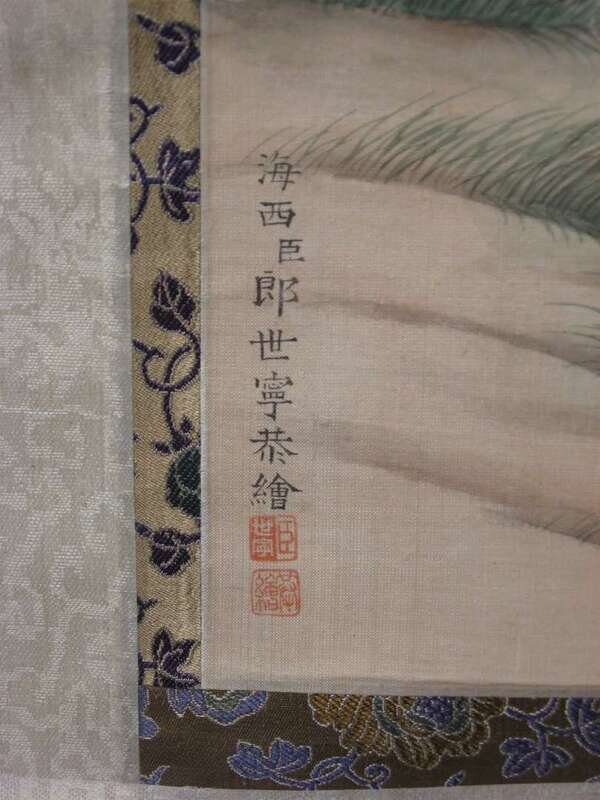 海西臣郎世寧恭繪
臣世寧